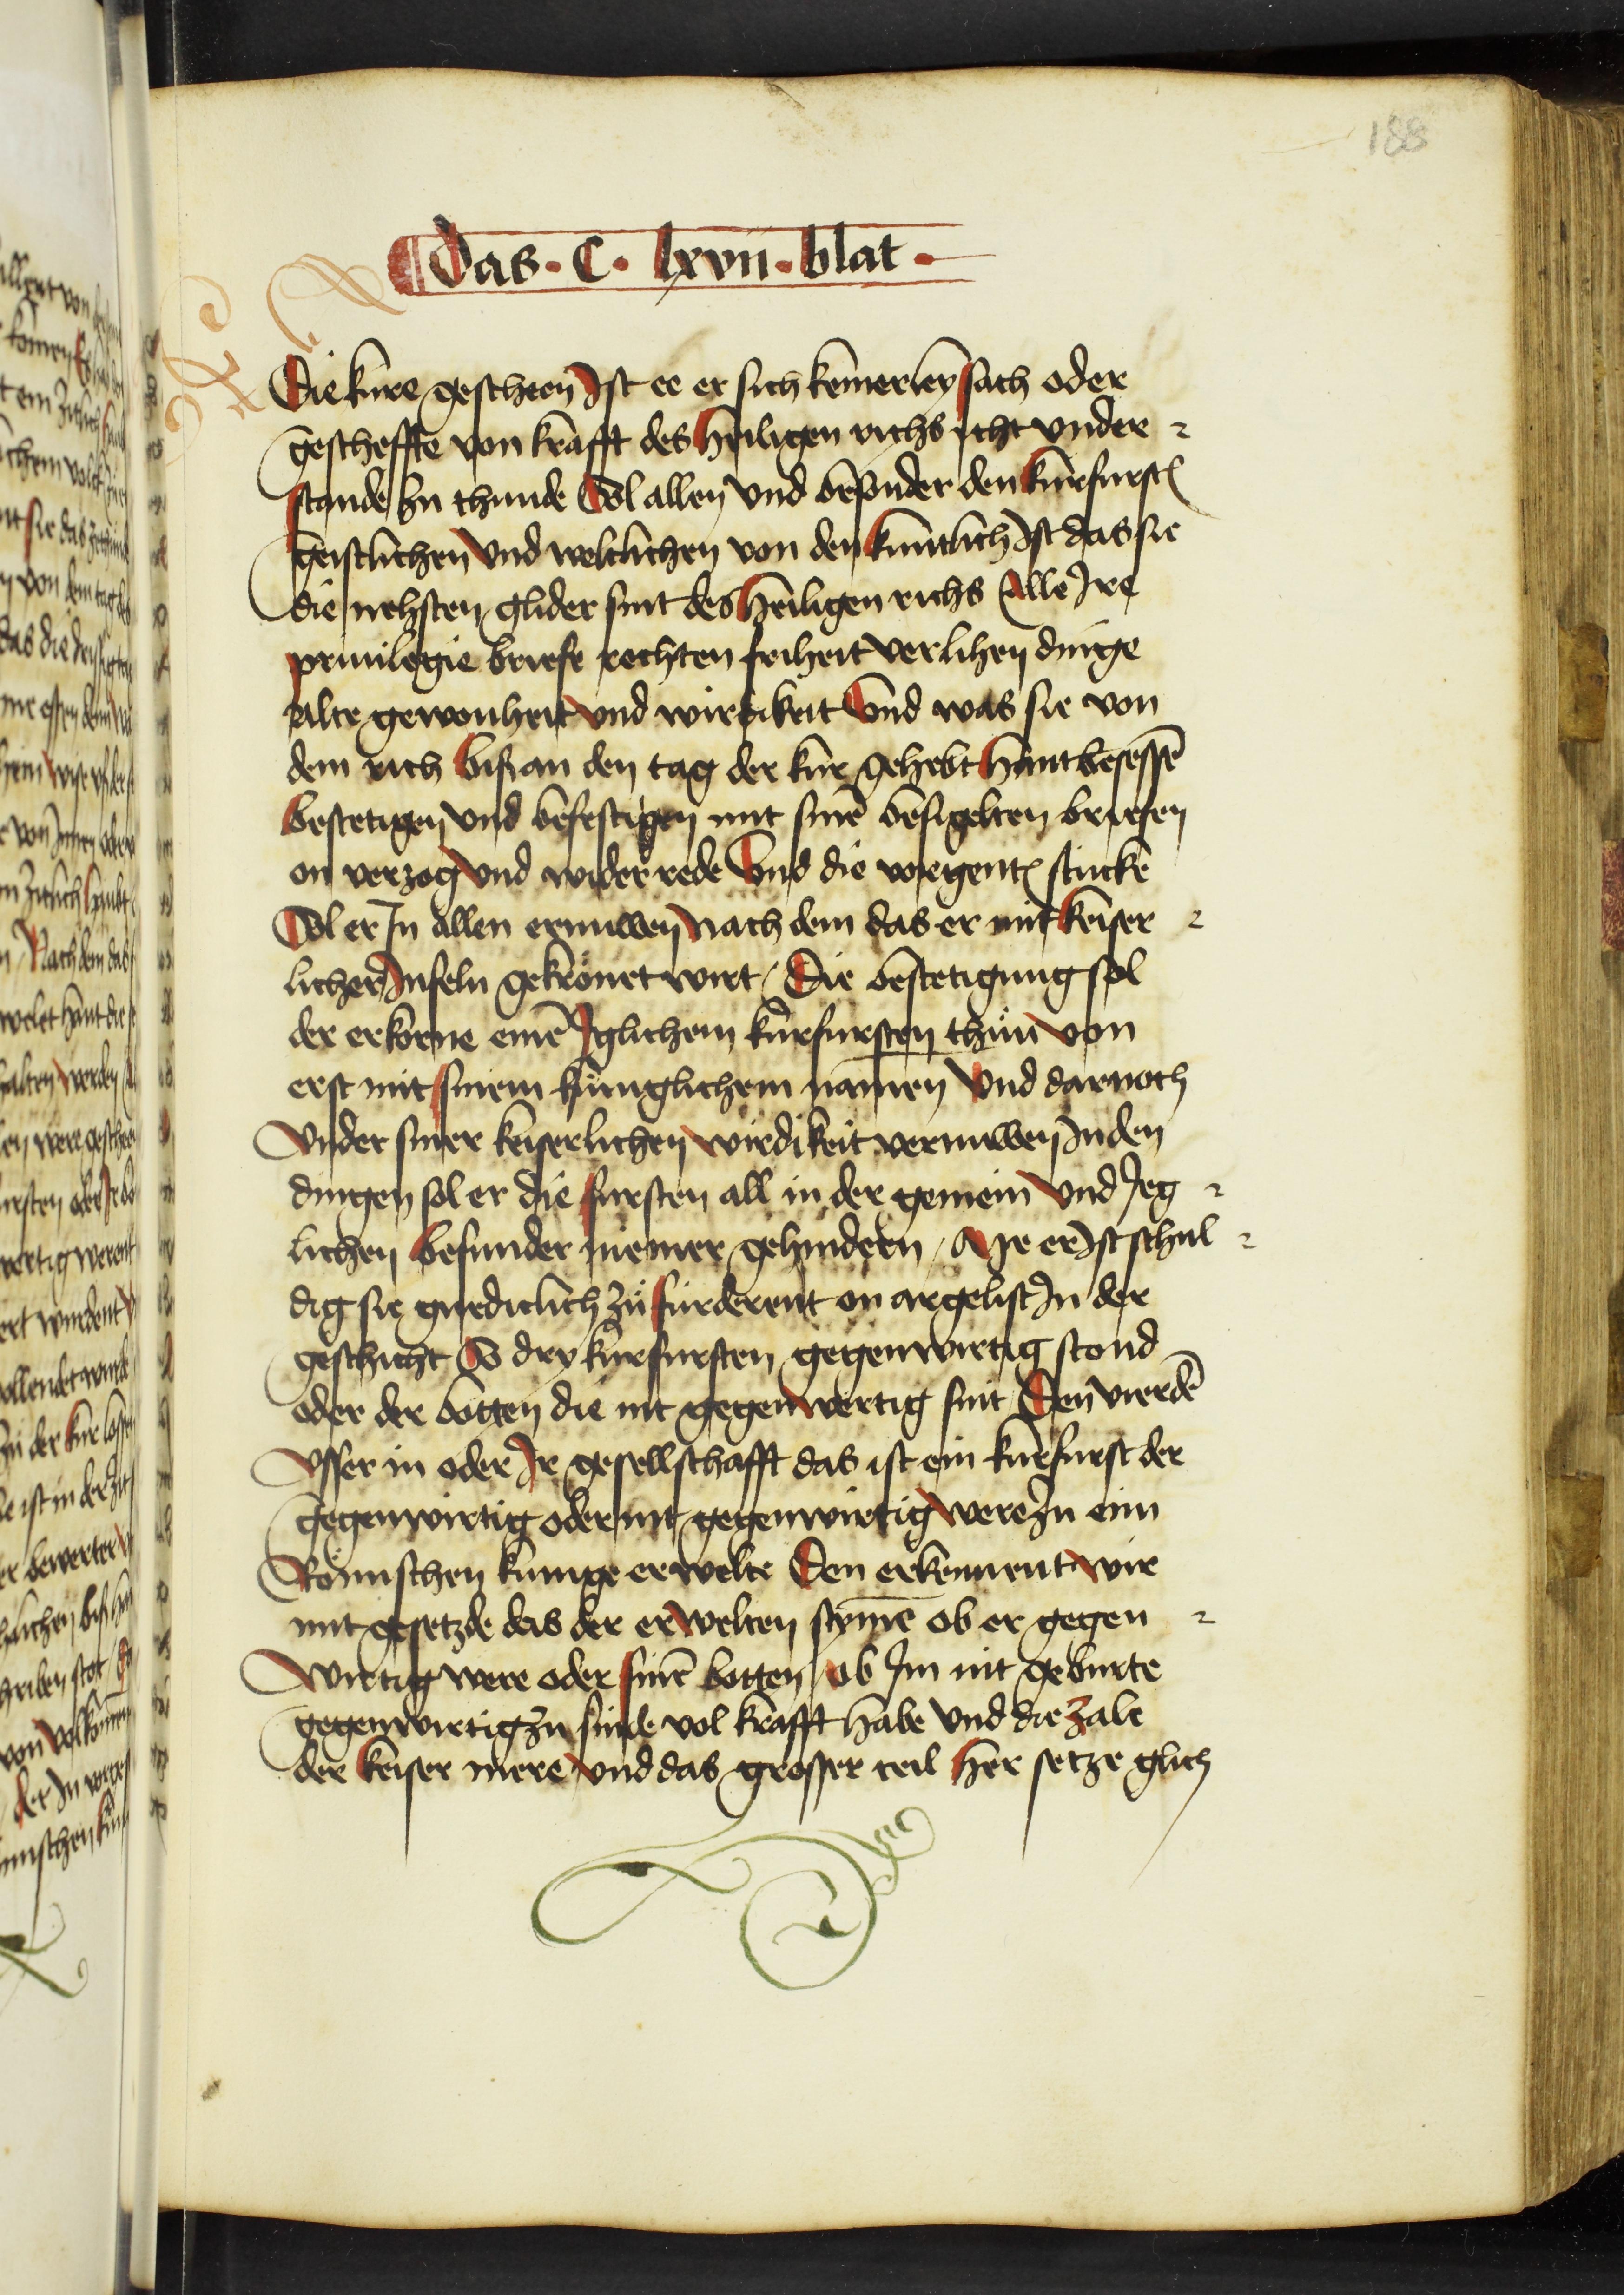 188
Das · C · lxvii · blat ·
Die kure gescheen Ist ee er sich keinerley sach oder
gescheffte von krafft des heiligen richs icht vnder
stande zu thunde Sol allen vnd besonder den kurfursten
geistlichen vnd weltlichen von den kuntlich Ist das sie
die nehsten glider sint des heiligen richs Alle Ire
priuilegie briefe rechten friheit verlihen dinge
alte gewonheit vnd wirdikeit Vnd was sie von
dem rich biß an den tag der kur gehebt hant besessē
bestetigen vnd befestigen mit sinē besigelten briefen
on verzog vnd wider rede Vnd die vorgentē stucke
Sol er In allen ernuwen nach dem das er mit keiser
licher Infeln gekrönet wirt / Die bestetigung sol
der erkorne einē Iglichem kurfursten thün von
erst mit sinem küniglichem namen Vnd darnoch
vnder siner keiserlichen wirdikeit vernuwen In den
dingen sol er die fursten all in der gemein vnd Jeg
lichen besunder niemer gehindern / Me er Ist schul
dig sie gnediclich zü fürderent on argelist In der
geschicht So dry kurfursten gegenwirtig stond
oder der botten die nit gegenwertig sint Den vierdē
vsser in oder Ir gesellschafft das ist ein kurfurst der
gegenwirtig oder nit gegenwirtig were Zu eim
Römischen kunige erwelte Den erkennent wir
mit gesetzde das der erwelten stymē ob er gegen
wirtig were oder sinē botten / ob Im nit geburte
gegenwirtig zu sinde vol krafft habe vnd die zale
der keiser mere vnd das grosser teil her setze glich